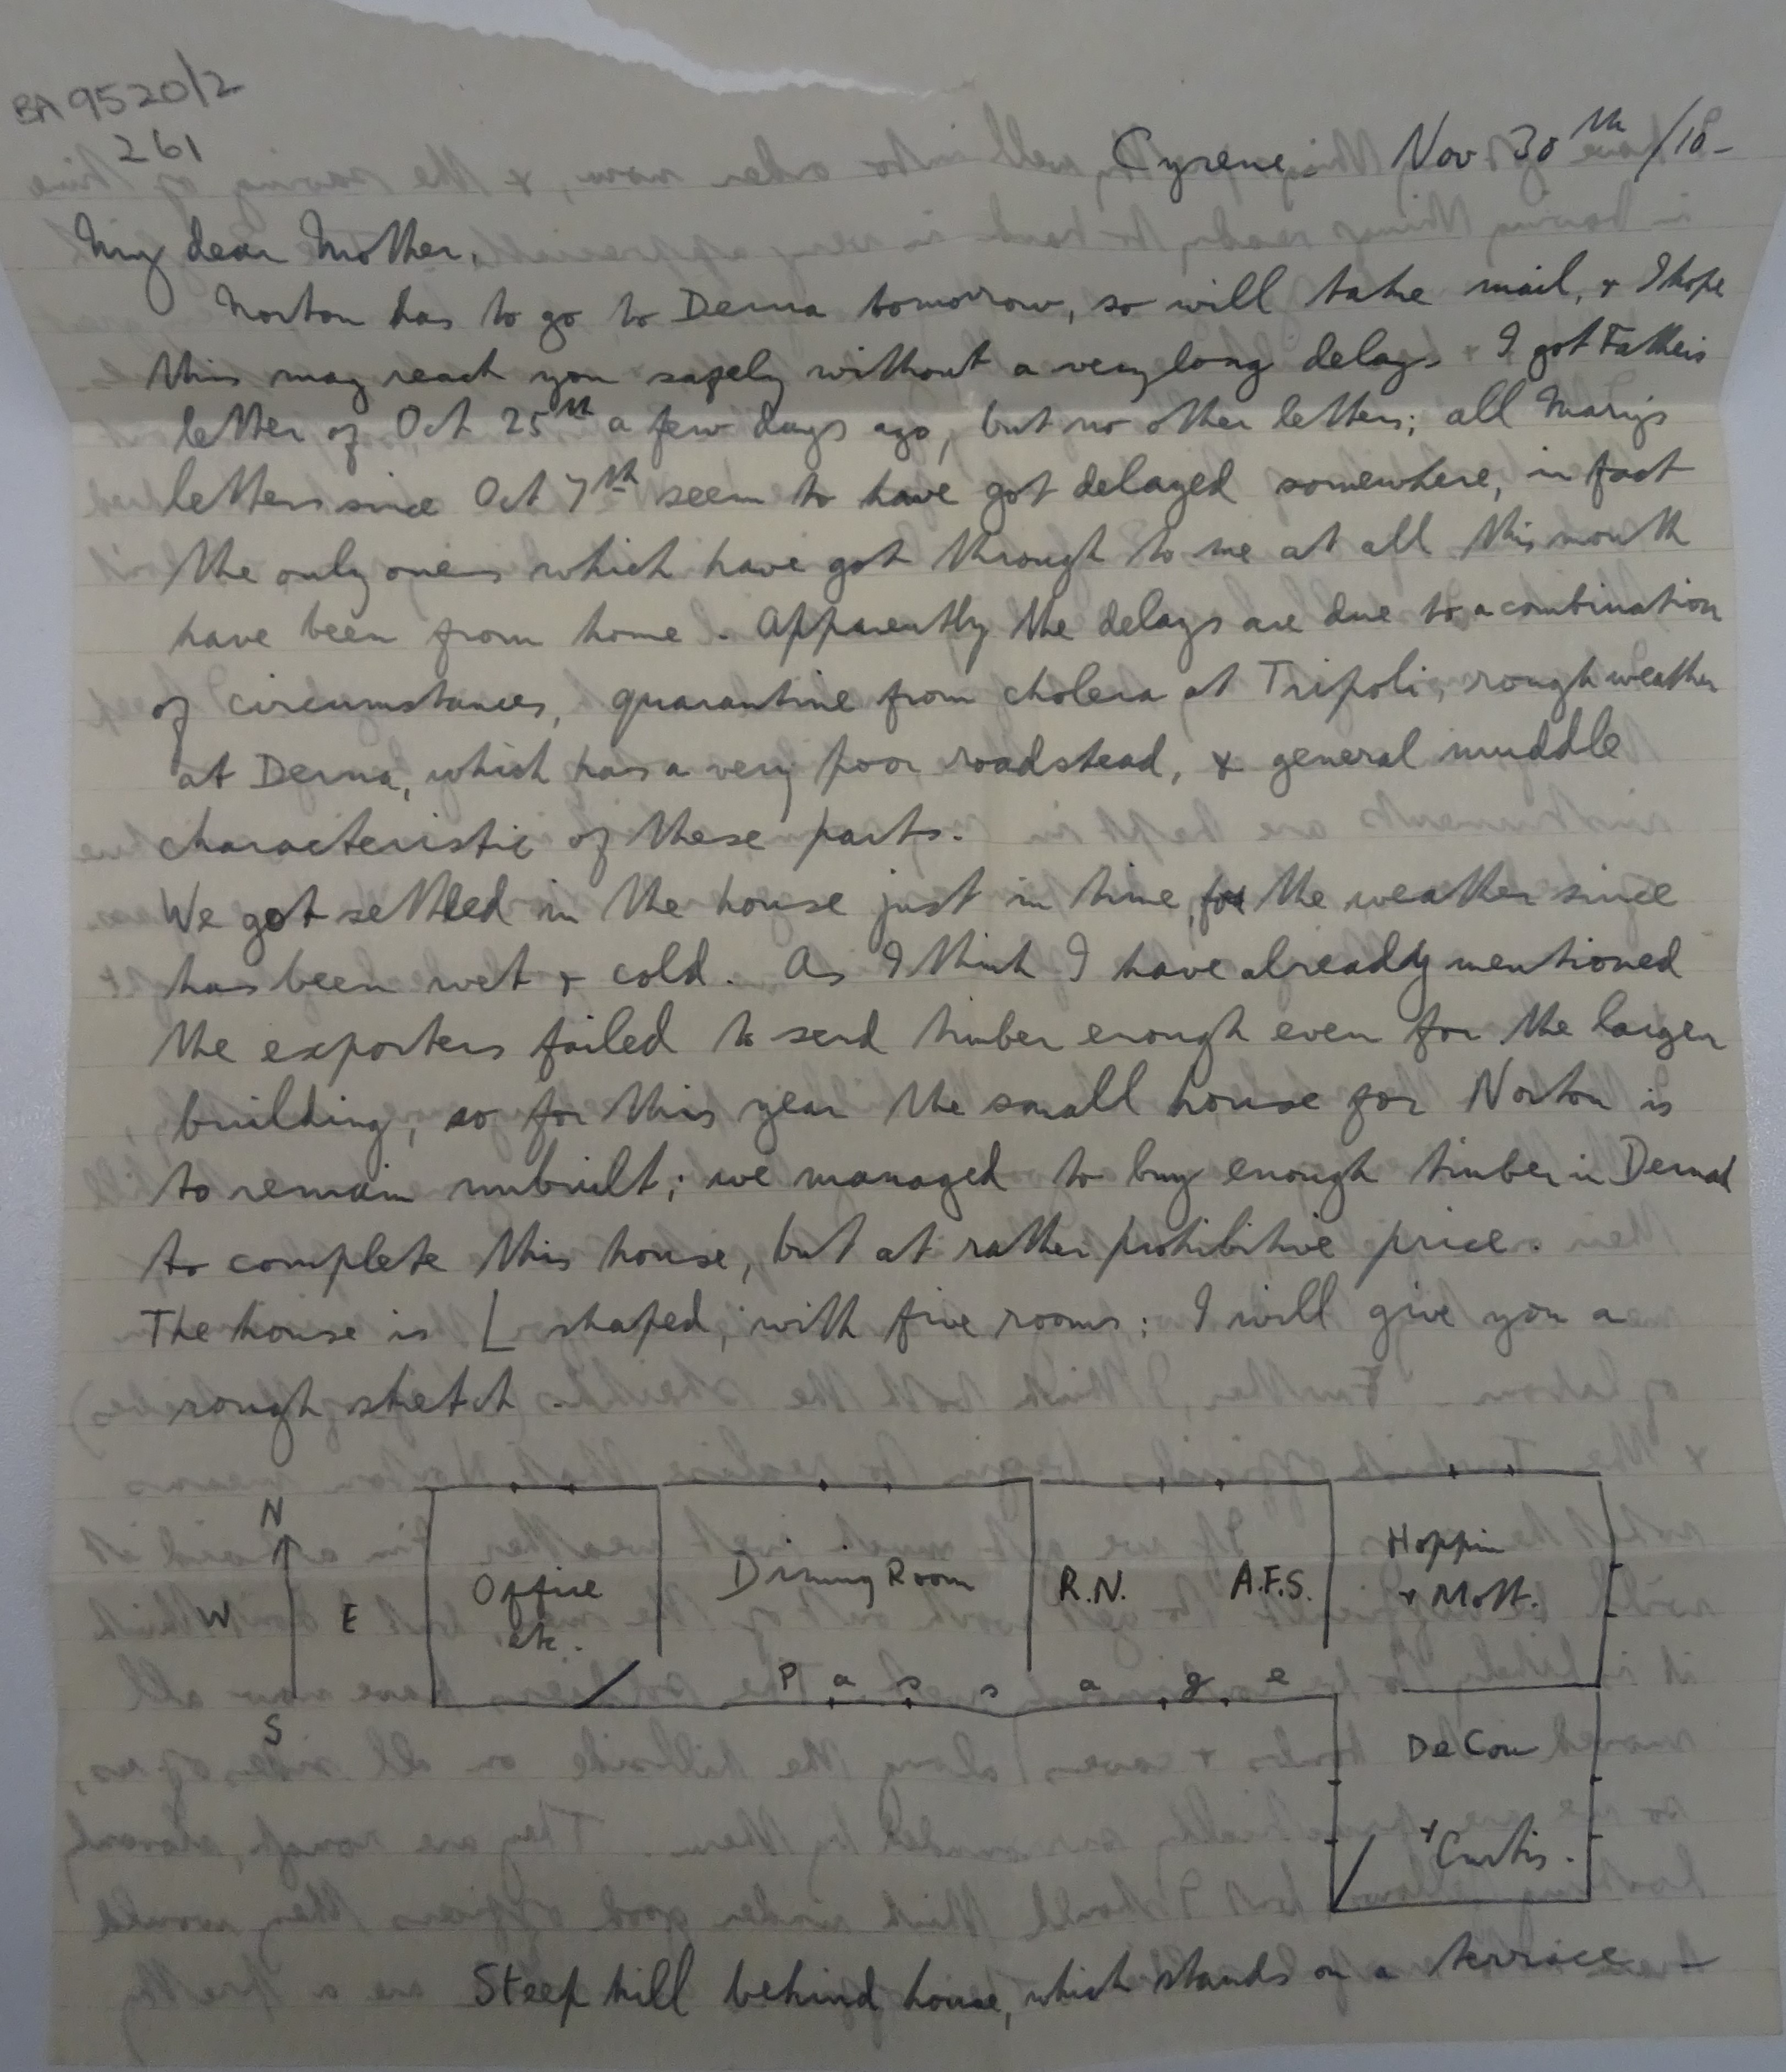 BA 9520/2
261
Cyrene. Nov 30th /10-
My dear Mother,
Norton has to go to Derna tomorrow, so will take mail, & I hope
this may reach you safely without a very long delay. I got Father's
letter of Oct 25th a few days ago, but no other letters; all Mary's
letters since Oct 7th seem to have got delayed somewhere, in fact
the only ones which have got through to me at all this month
have been from home. Apparently the delays are due to a combination
of circumstances, quarantine from cholera at Tripoli, rough weather
at Derna, which has a very poor roadstead, & general muddle
characteristic of these parts.
We got settled in the house just in time, for the weather since
has been wet & cold. As I think I have already mentioned
the exporters failed to send timber enough even for the larger
building, so for this year the small house for Norton is
to remain unbuilt; we managed to buy enough timber in Derna
to complete this house, but at rather prohibitive price.
The house is L shaped, with five rooms: I will give you a
rough sketch.
N
W E
S
Office
etc.
Dining Room
R.N. A.F.S.
Hoppin
& Mott.
Passage
DeCou
& Curtis.
Steep hill behind house, which stands on a terrace -